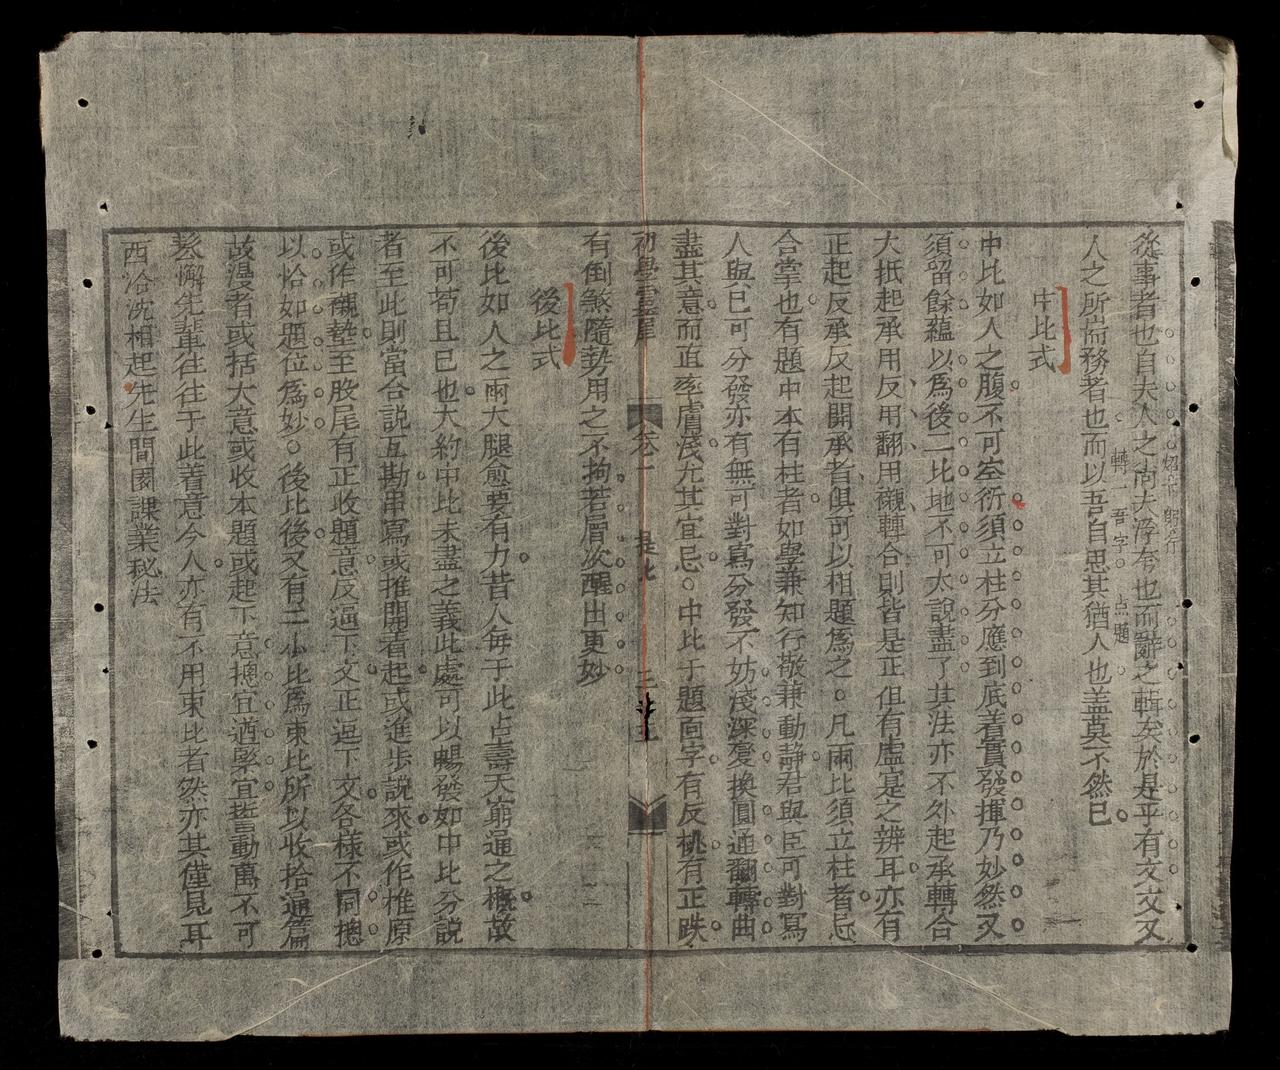 從事者也自夫人之尚夫浮夸也而辭之輯矣於是乎有文文又
人之所當務者也而以吾自思其猶人也盖莫不然已
轉一吾字 点題
中比式
中比如人之腹不可空衍須立柱分應到底着實發揮乃妙然又
須留餘蘊以爲後二比地不可太說盡了其法亦不外起承轉合
大抵起承用反用翻用襯轉合則皆是正但有虛寔之辨耳亦有
正起反承反起開承者俱可以相題爲之凡兩比須立柱者忌
合掌也有題中本有柱者如學兼知行敬兼動靜君與臣可對寫
人與已可分發亦有無可對寫分發不妨淺深變換圓通翻轉曲
盡其意而直率膚淺尤其宜忌中比于題面字有反挑有正跌
初學靈犀 卷一 提比
有倒煞隨勢用之不拘若層次醒出更妙
後比式
後比如人之兩大腿愈要有力昔人每于此占壽夭窮通之概故
不可苟且已也大約中比未盡之義此處可以暢發如中比分說
者至此則當合説互勘串寫或推開看起或進步說來或作推原
或作襯墊至股尾有正收題意反逼下文正逼下文各樣不同總
以恰如題位爲妙後比後又有二小比爲束比所以收拾通篇
故漫者或括大意或收本題或起下意總宜遒緊宜警動萬不可
鬆懈先輩往往于此着意今人亦有不用束比者然亦其僅見耳
西洽沈相起先生間園課業秘法